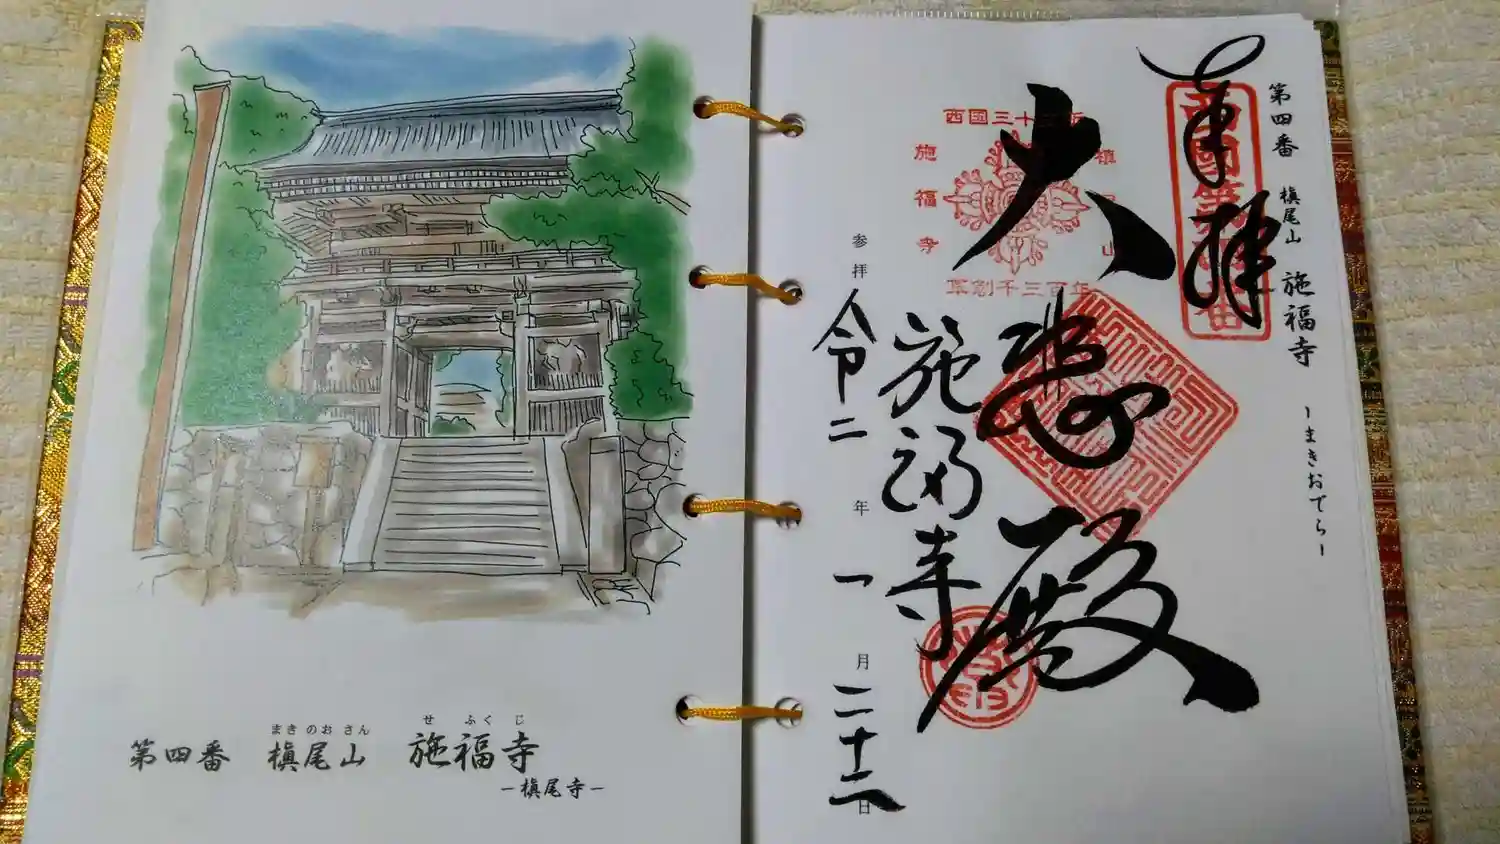 まきのおさん
せふくじ
第四番 槇尾山 施福寺
ー槇尾寺ー
第四番 槇尾山 施福寺 ーまきおでらー
奉拝
西国第四番
西国三十三所
槙尾山
施福寺
草創千三百年
大悲殿
施福寺
参拝 令二年一月二十二日